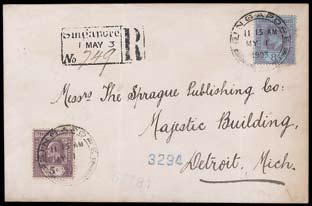 Singapore
1 MAY 3
R
No 749
SINGAPORE
11 15 AM
MY 1
1903
Messrs The Sprague Publishing Co:
Majestic Building,
3294
Detroit, Mich.
SINGAPORE
AM
5c